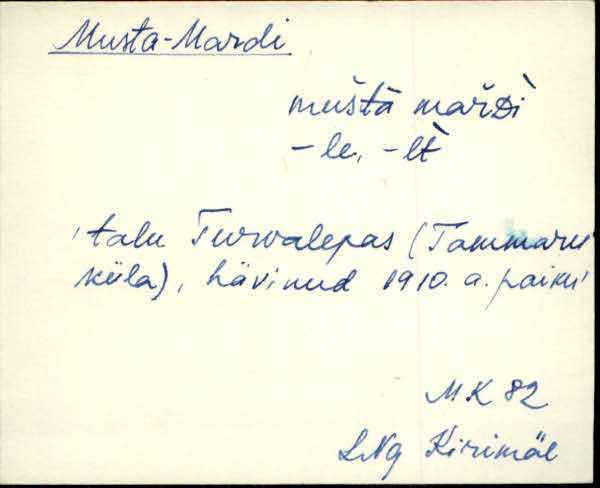 Musta-Mardi
mušta marDì
-le, -lt̀
talu Turvalepas (Tammaru
küla), hävinud 1910. a. paiku
MK 82
LNg Kirimäe